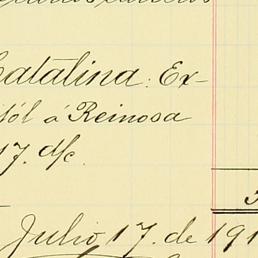 Catalina: Ex-
tól á Reinosa
17. d/c.
Julio 17. de 191